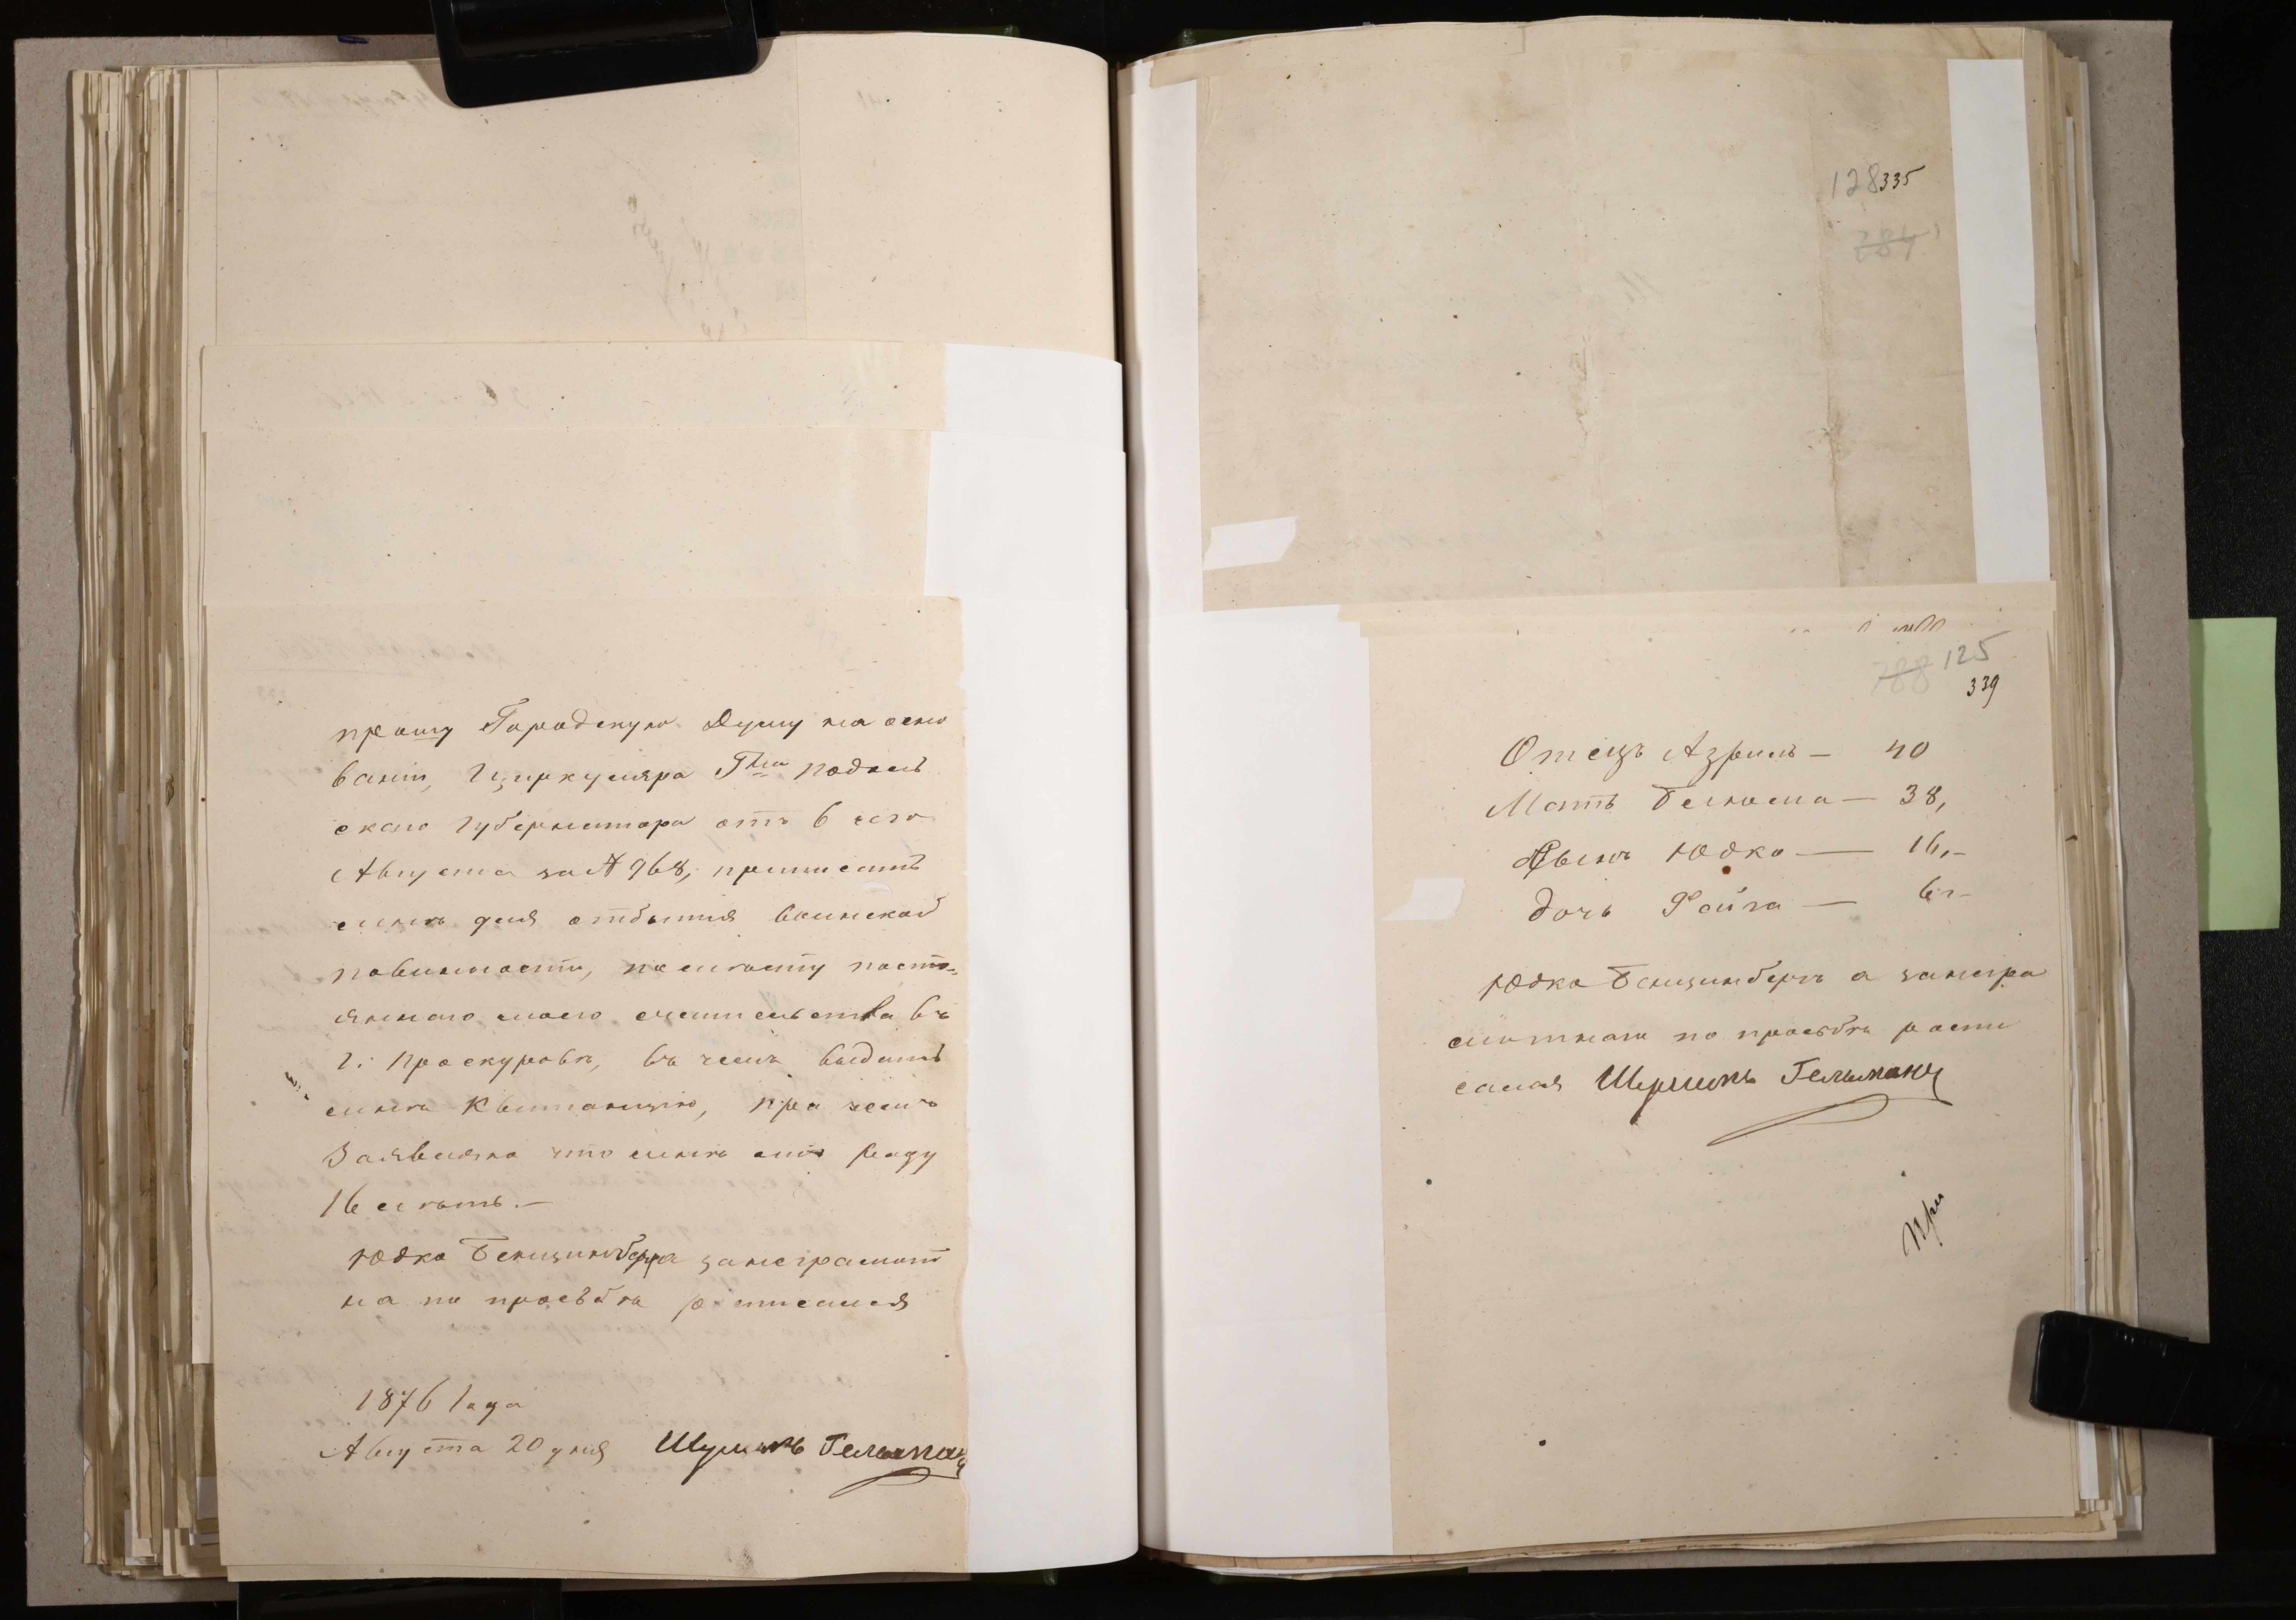 прошу Городскую Думу на осно
ваніи, Циркуляра Гна Подоль
скаго Губернатора отъ 6 сего
Августа за № 968, приписать
мина для отбытія воинской
повинности, по мѣсту посто=
яннаго моего жительства въ
г: Проскуровѣ, въ чемъ выдать
минѣ Квитанцію, при чемъ
Заявляю что минѣ отъ роду
16 лѣтъ. —
Юдко Бенцинберга занеграмот
на по прозьбѣ росписался
1876 Года
Августа 20 дня Шулимъ Гельманъ
128 335
284
788 125
339
Отецъ Азриль — 40
Мать — 38,
Сынъ Юдко — 16, —
Дочь Файга — 6 —
Юдко Бенцинбергъ а занегра
мотнаго по прозьбѣ роспи
сался Шулимъ Гельманъ
При